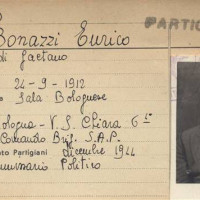 PARTIG
Bonazzi Enrico
di Gaetano
24-9-1912
Sala Bolognese
Bologna - V. S. Chiara 6
Comando Brig. S.A.P.
to Partigiani Dicembre 1944
mmissario Politico